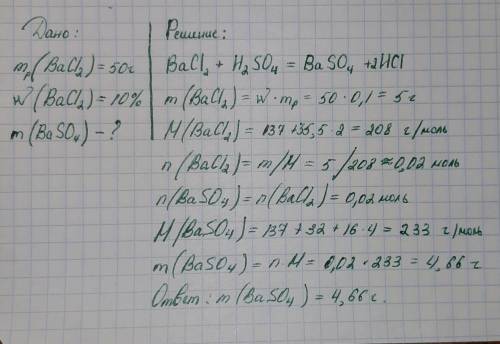 Дано:
mр(BaCl₂) = 50г
w(BaCl₂) = 10%
m(BaSO₄) – ?
Решение:
BaCl₂ + H₂SO₄ = BaSO₄ + 2HCl
m(BaCl₂) = w · mр = 50 · 0,1 = 5 г
M(BaCl₂) = 137 + 35,5 · 2 = 208 г/моль
n(BaCl₂) = m/M = 5/208 ≈ 0,02 моль
n(BaSO₄) = n(BaCl₂) = 0,02 моль
M(BaSO₄) = 137 + 32 + 16 · 4 = 233 г/моль
m(BaSO₄) = n · M = 0,02 · 233 = 4,66 г
Ответ: m(BaSO₄) = 4,66 г.